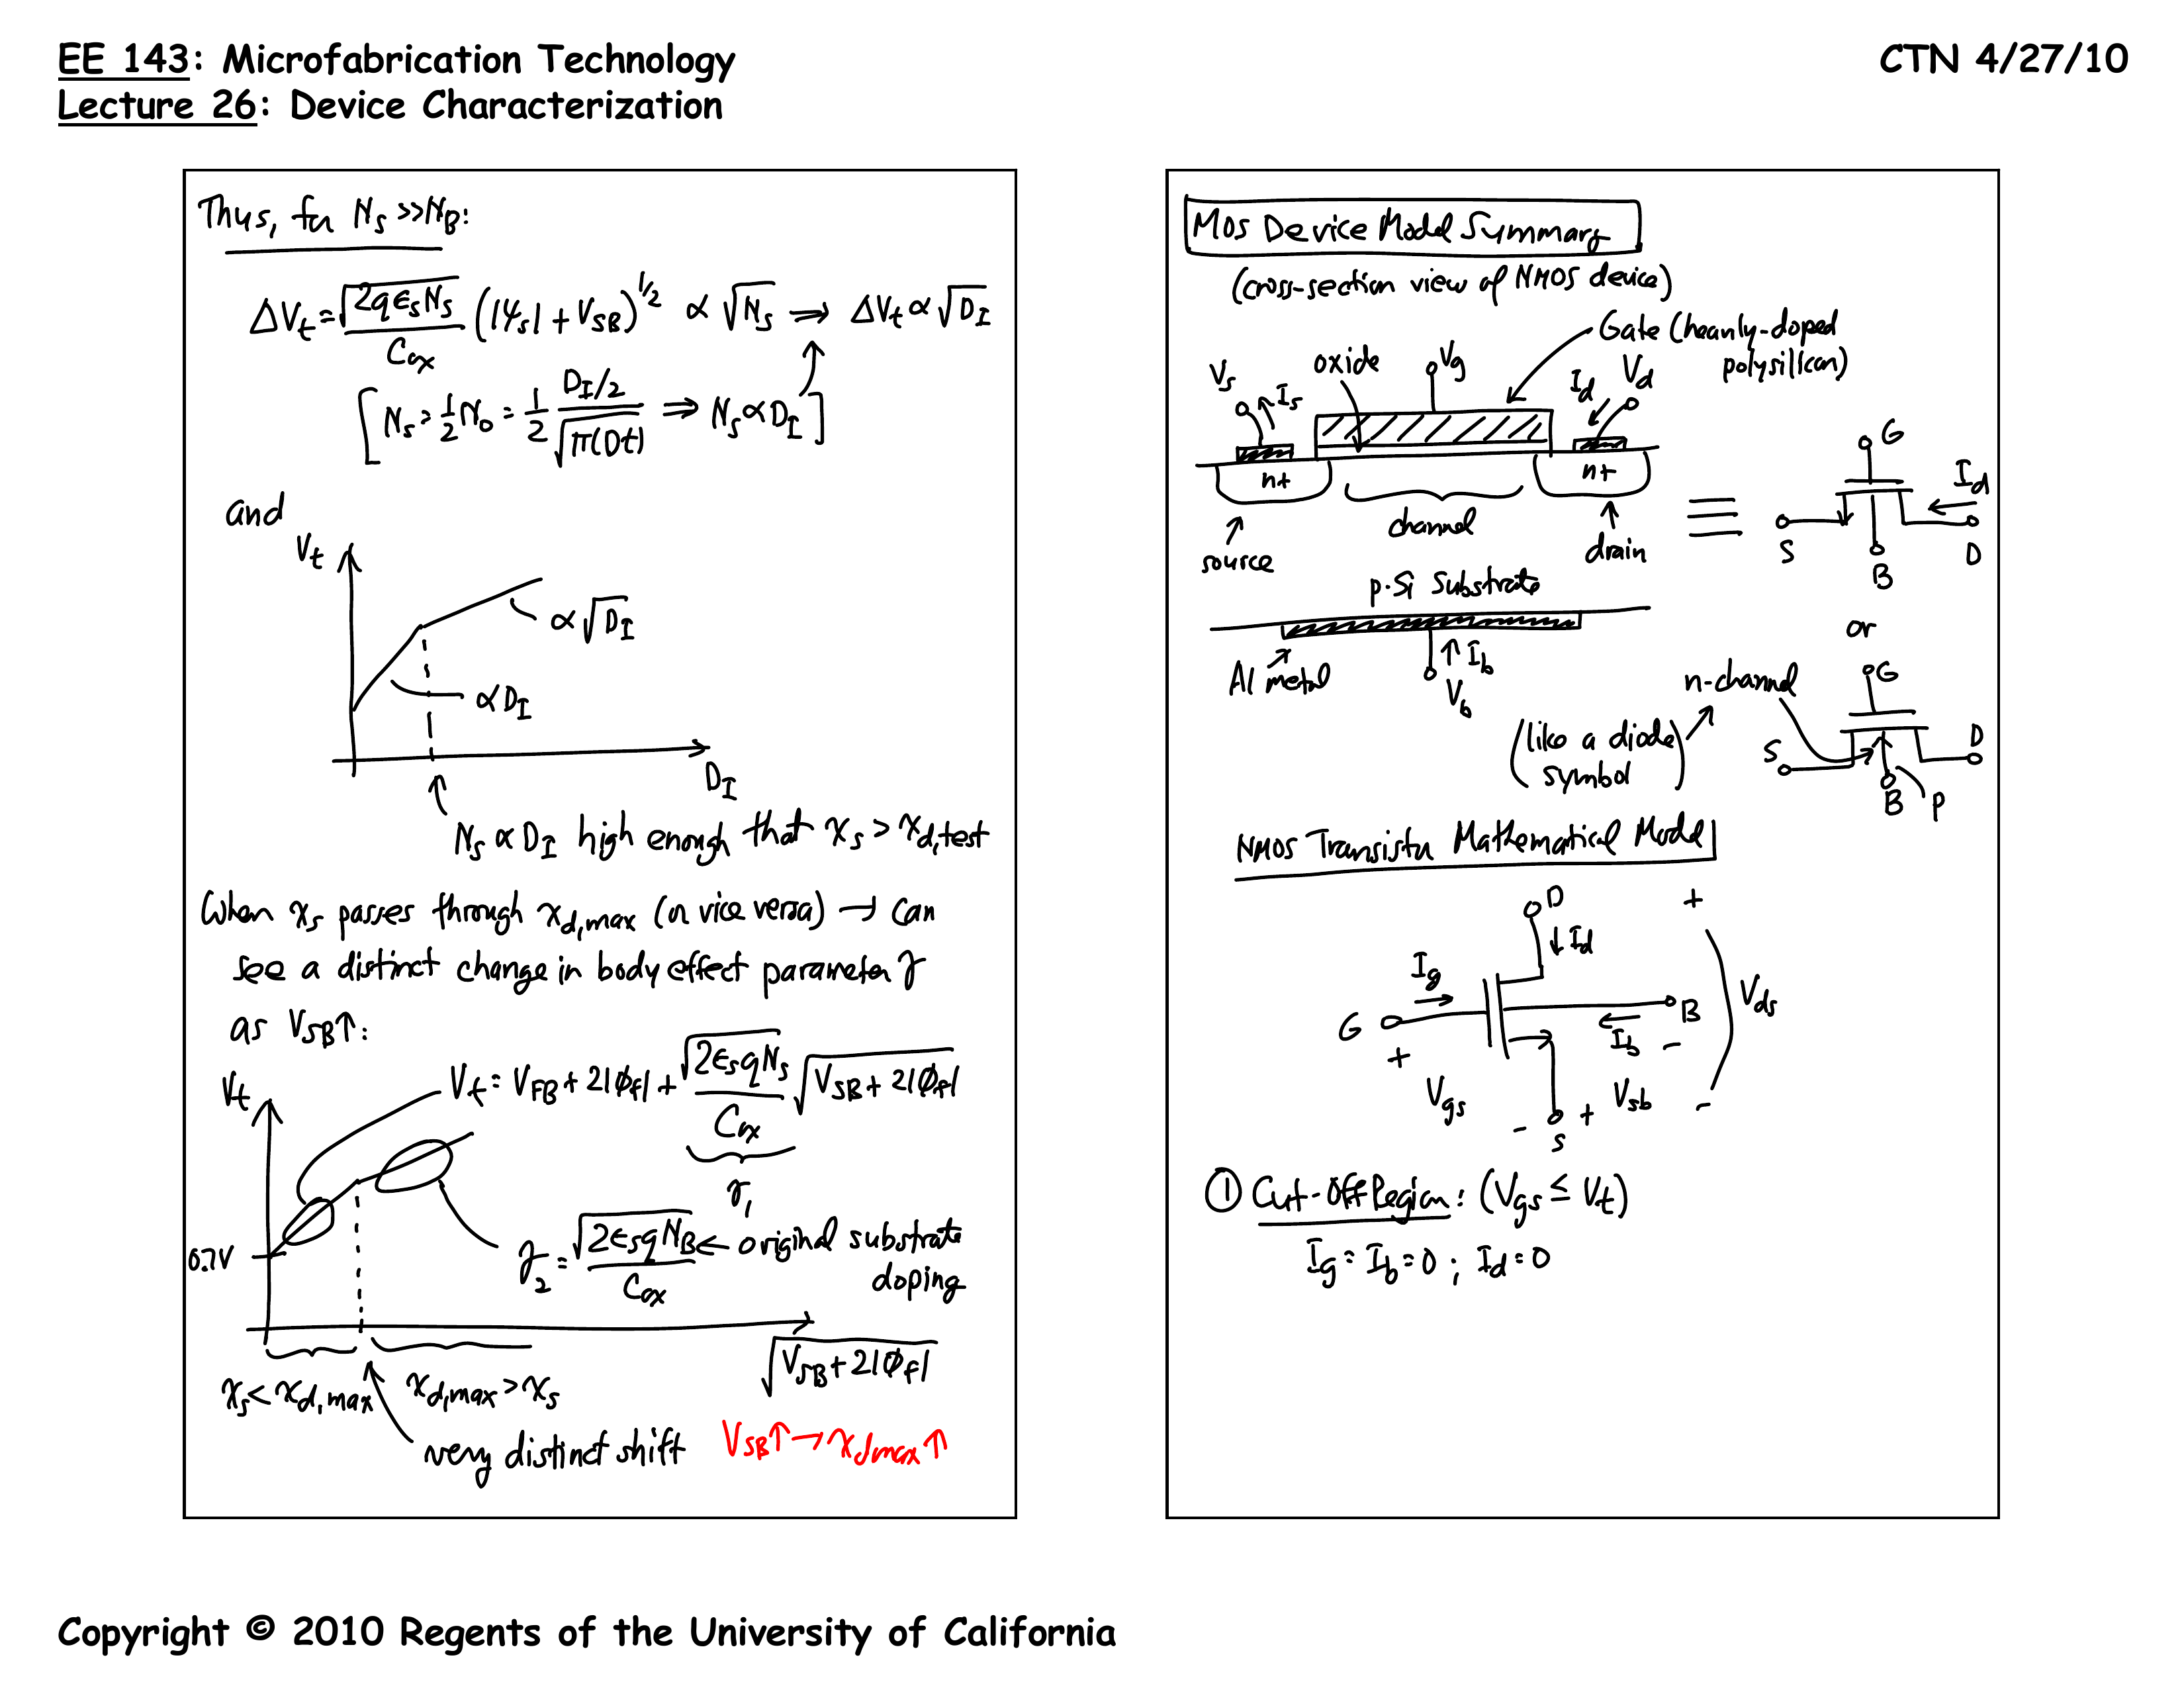 EE 143: Microfabrication Technology
CTN 4/27/10
Lecture 26: Device Characterization
Thus, for N_S >> N_B:
ΔV_t = √(2qε_s N_s) / C_ox (|ψ_s| + V_SB)^1/2 ∝ √N_s ⇒ ΔV_t ∝ √D_I
[N_s = 1/2 N_o = 1/2 (D_I/2) / √(π(Dt)) ⇒ N_s ∝ D_I]
and
V_t
∝ √D_I
∝ D_I
D_I
N_s ∝ D_I high enough that x_s > x_d,test
When x_s passes through x_d,max (or vice versa) → can
see a distinct change in body effect parameter γ
as V_SB↑:
V_t
V_t = V_FB + 2|ϕ_f| + √(2ε_s q N_s) / C_ox √(V_SB + 2|ϕ_f|)
γ_1
0.7V
γ_2 = √(2ε_s q N_B) / C_ox ← original substrate
doping
√(V_SB + 2|ϕ_f|)
x_s < x_d,max
x_d,max > x_s
very distinct shift
V_SB↑ → x_dmax↑
MOS Device Model Summary
(cross-section view of NMOS device)
Gate (heavily-doped
polysilicon)
V_s
I_s
oxide
V_g
I_d
V_d
n+
n+
source
channel
drain
p-Si substrate
Al metal
I_b
V_b
G
I_d
S
B
D
or
n-channel
(like a diode
symbol)
G
S
D
B
P
NMOS Transistor Mathematical Model
D
+
I_d
I_g
V_ds
G
B
+
I_b
-
V_gs
V_sb
-
-
+
S
① Cut-Off Region: (V_gs ≤ V_t)
I_g = I_b = 0 ; I_d = 0
Copyright © 2010 Regents of the University of California